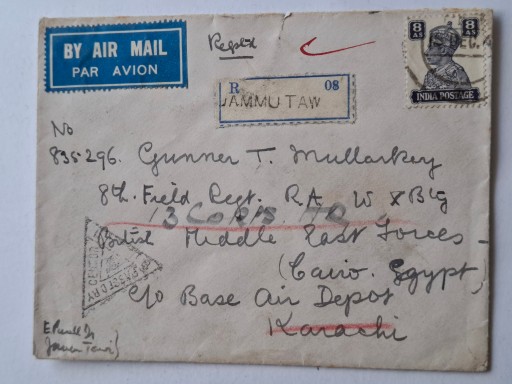 BY AIR MAIL
PAR AVION
Regist
8 AS 8 AS
INDIA POSTAGE
R 08
JAMMU TAW
No
835296. Gunner T. Mullarkey
8th. Field Regt. R.A W X Btg
13 CORPS HQ
British Middle East Forces -
(Cairo. Egypt)
c/o Base Air Depot
Karachi
PASSED BY CENSOR